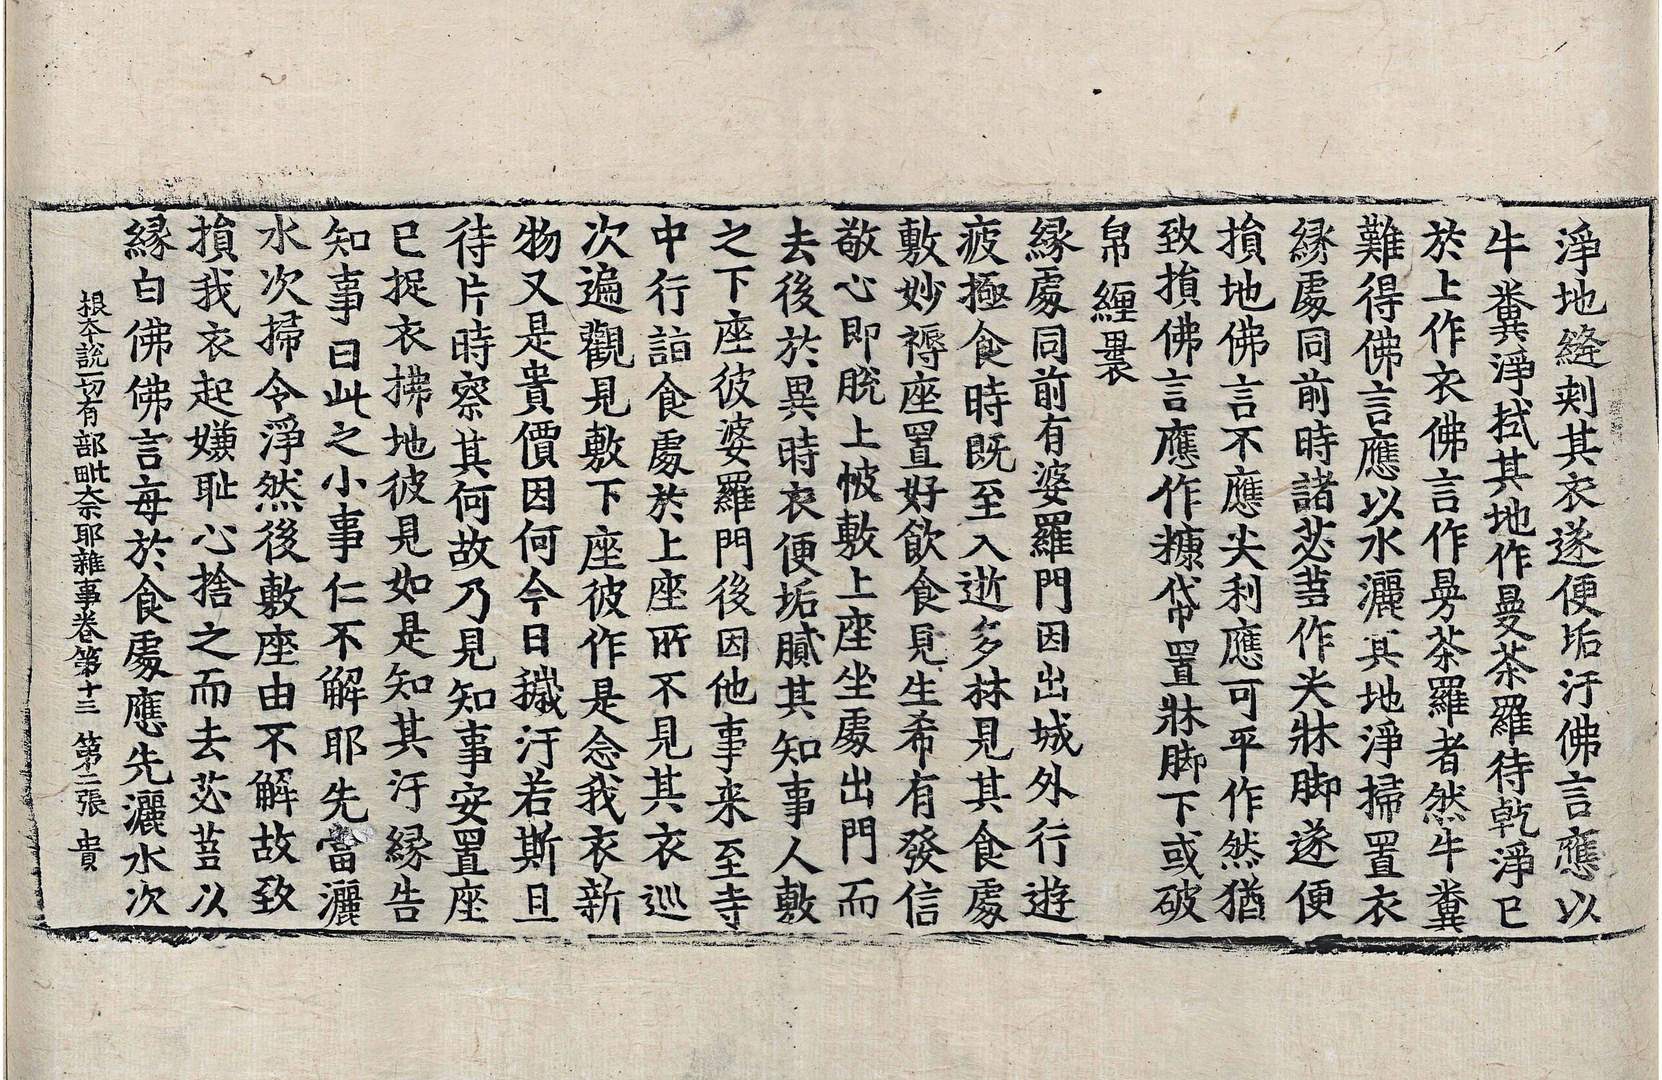 淨地縫刾其衣遂便垢汙佛言應以
牛糞淨拭其地作曼茶羅待乾淨已
於上作衣佛言作曼茶羅者然牛糞
難得佛言應以水灑其地淨掃置衣
緣處同前時諸苾蒭作尖牀脚遂便
損地佛言不應尖利應可平作然猶
致損佛言應作糠帒置牀脚下或破
帛纏裹
緣處同前有婆羅門因出城外行遊
疲極食時既至入逝多林見其食處
敷妙褥座置好飲食見生希有發信
敬心即脫上帔敷上座坐處出門而
去後於異時衣便垢膩其知事人敷
之下座彼婆羅門後因他事来至寺
中行詣食處於上座所不見其衣巡
次遍觀見敷下座彼作是念我衣新
物又是貴價因何今日穢汙若斯且
待片時察其何故乃見知事安置座
已捉衣拂地彼見如是知其汙緣告
知事曰此之小事仁不解耶先當灑
水次掃令淨然後敷座由不解故致
損我衣起嫌耻心捨之而去苾蒭以
緣白佛佛言每於食處應先灑水次
根本說一切有部毗奈耶雜事卷第十三 第二張 貴